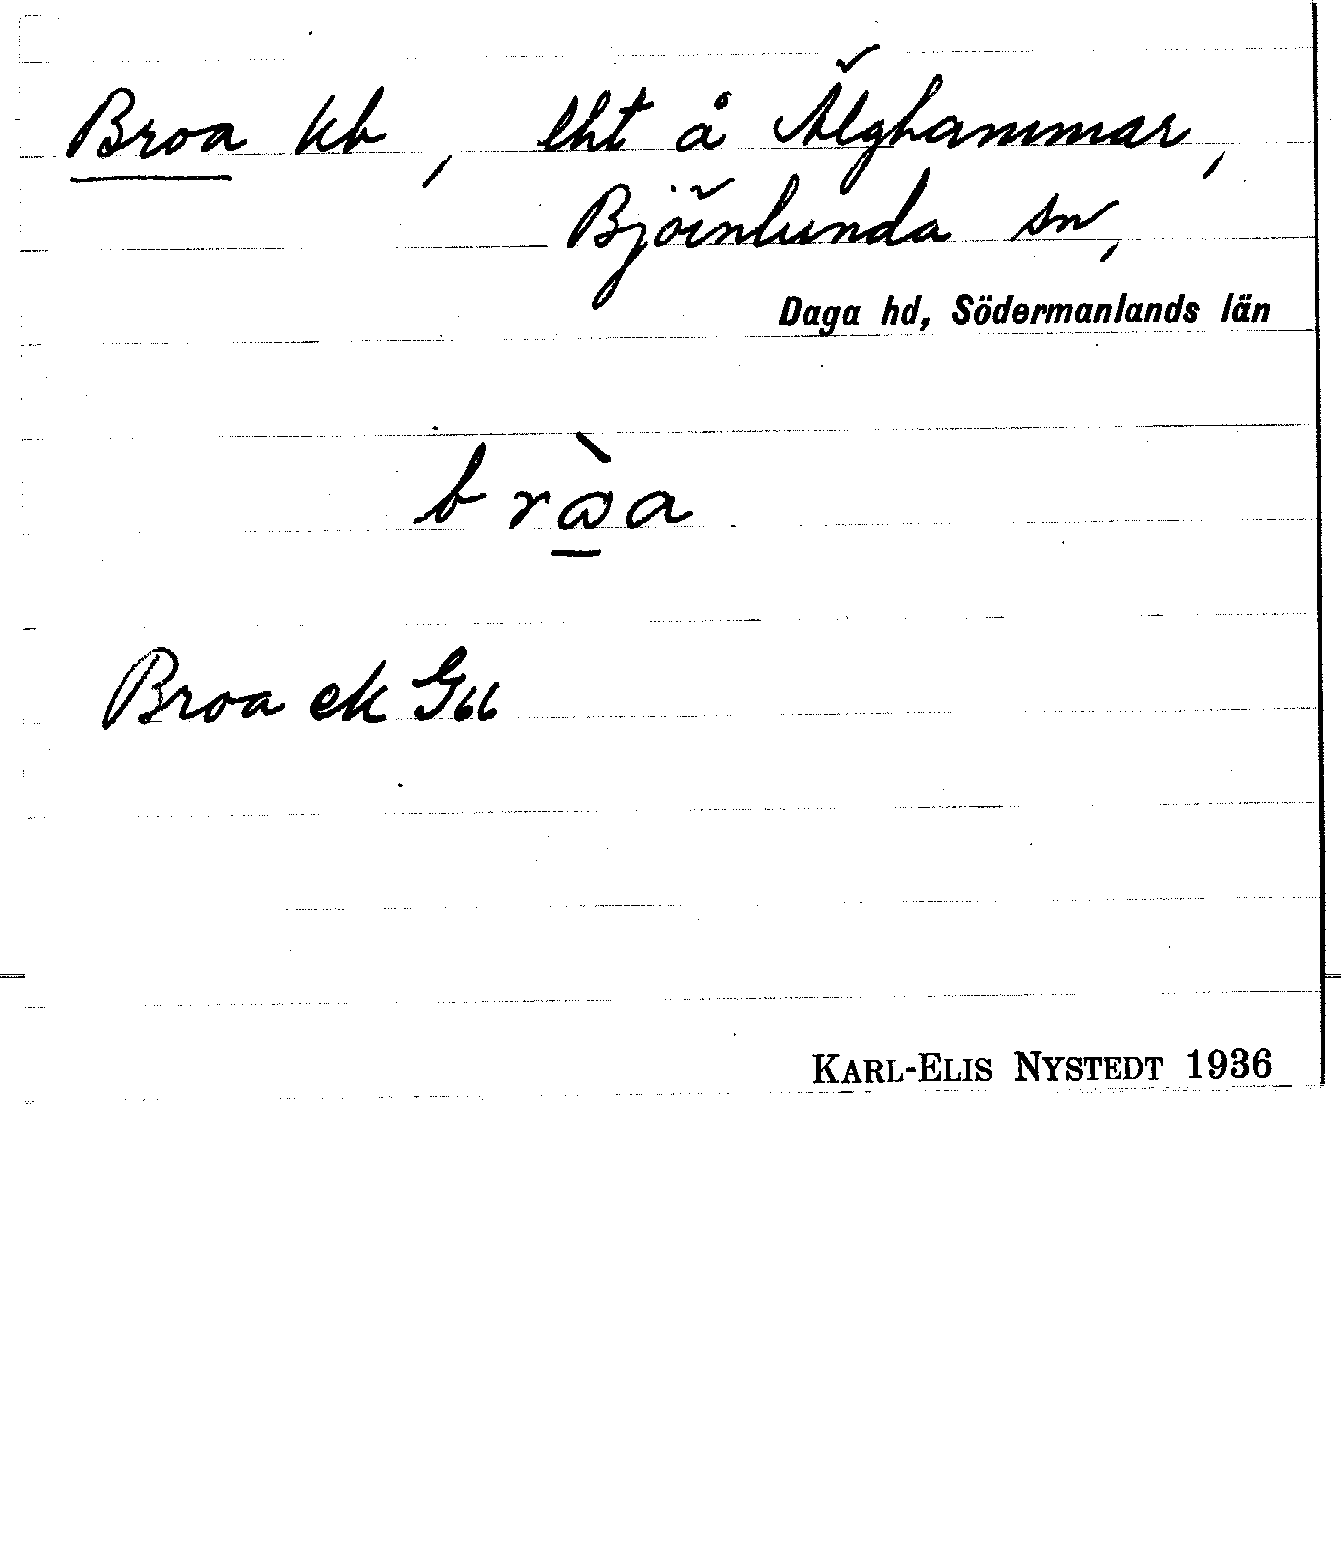 Broa kb, lht å Älghammar,
Björnlunda sn,
Daga hd, Södermanlands län
bròa
Broa ek G66
KARL-ELIS NYSTEDT 1936